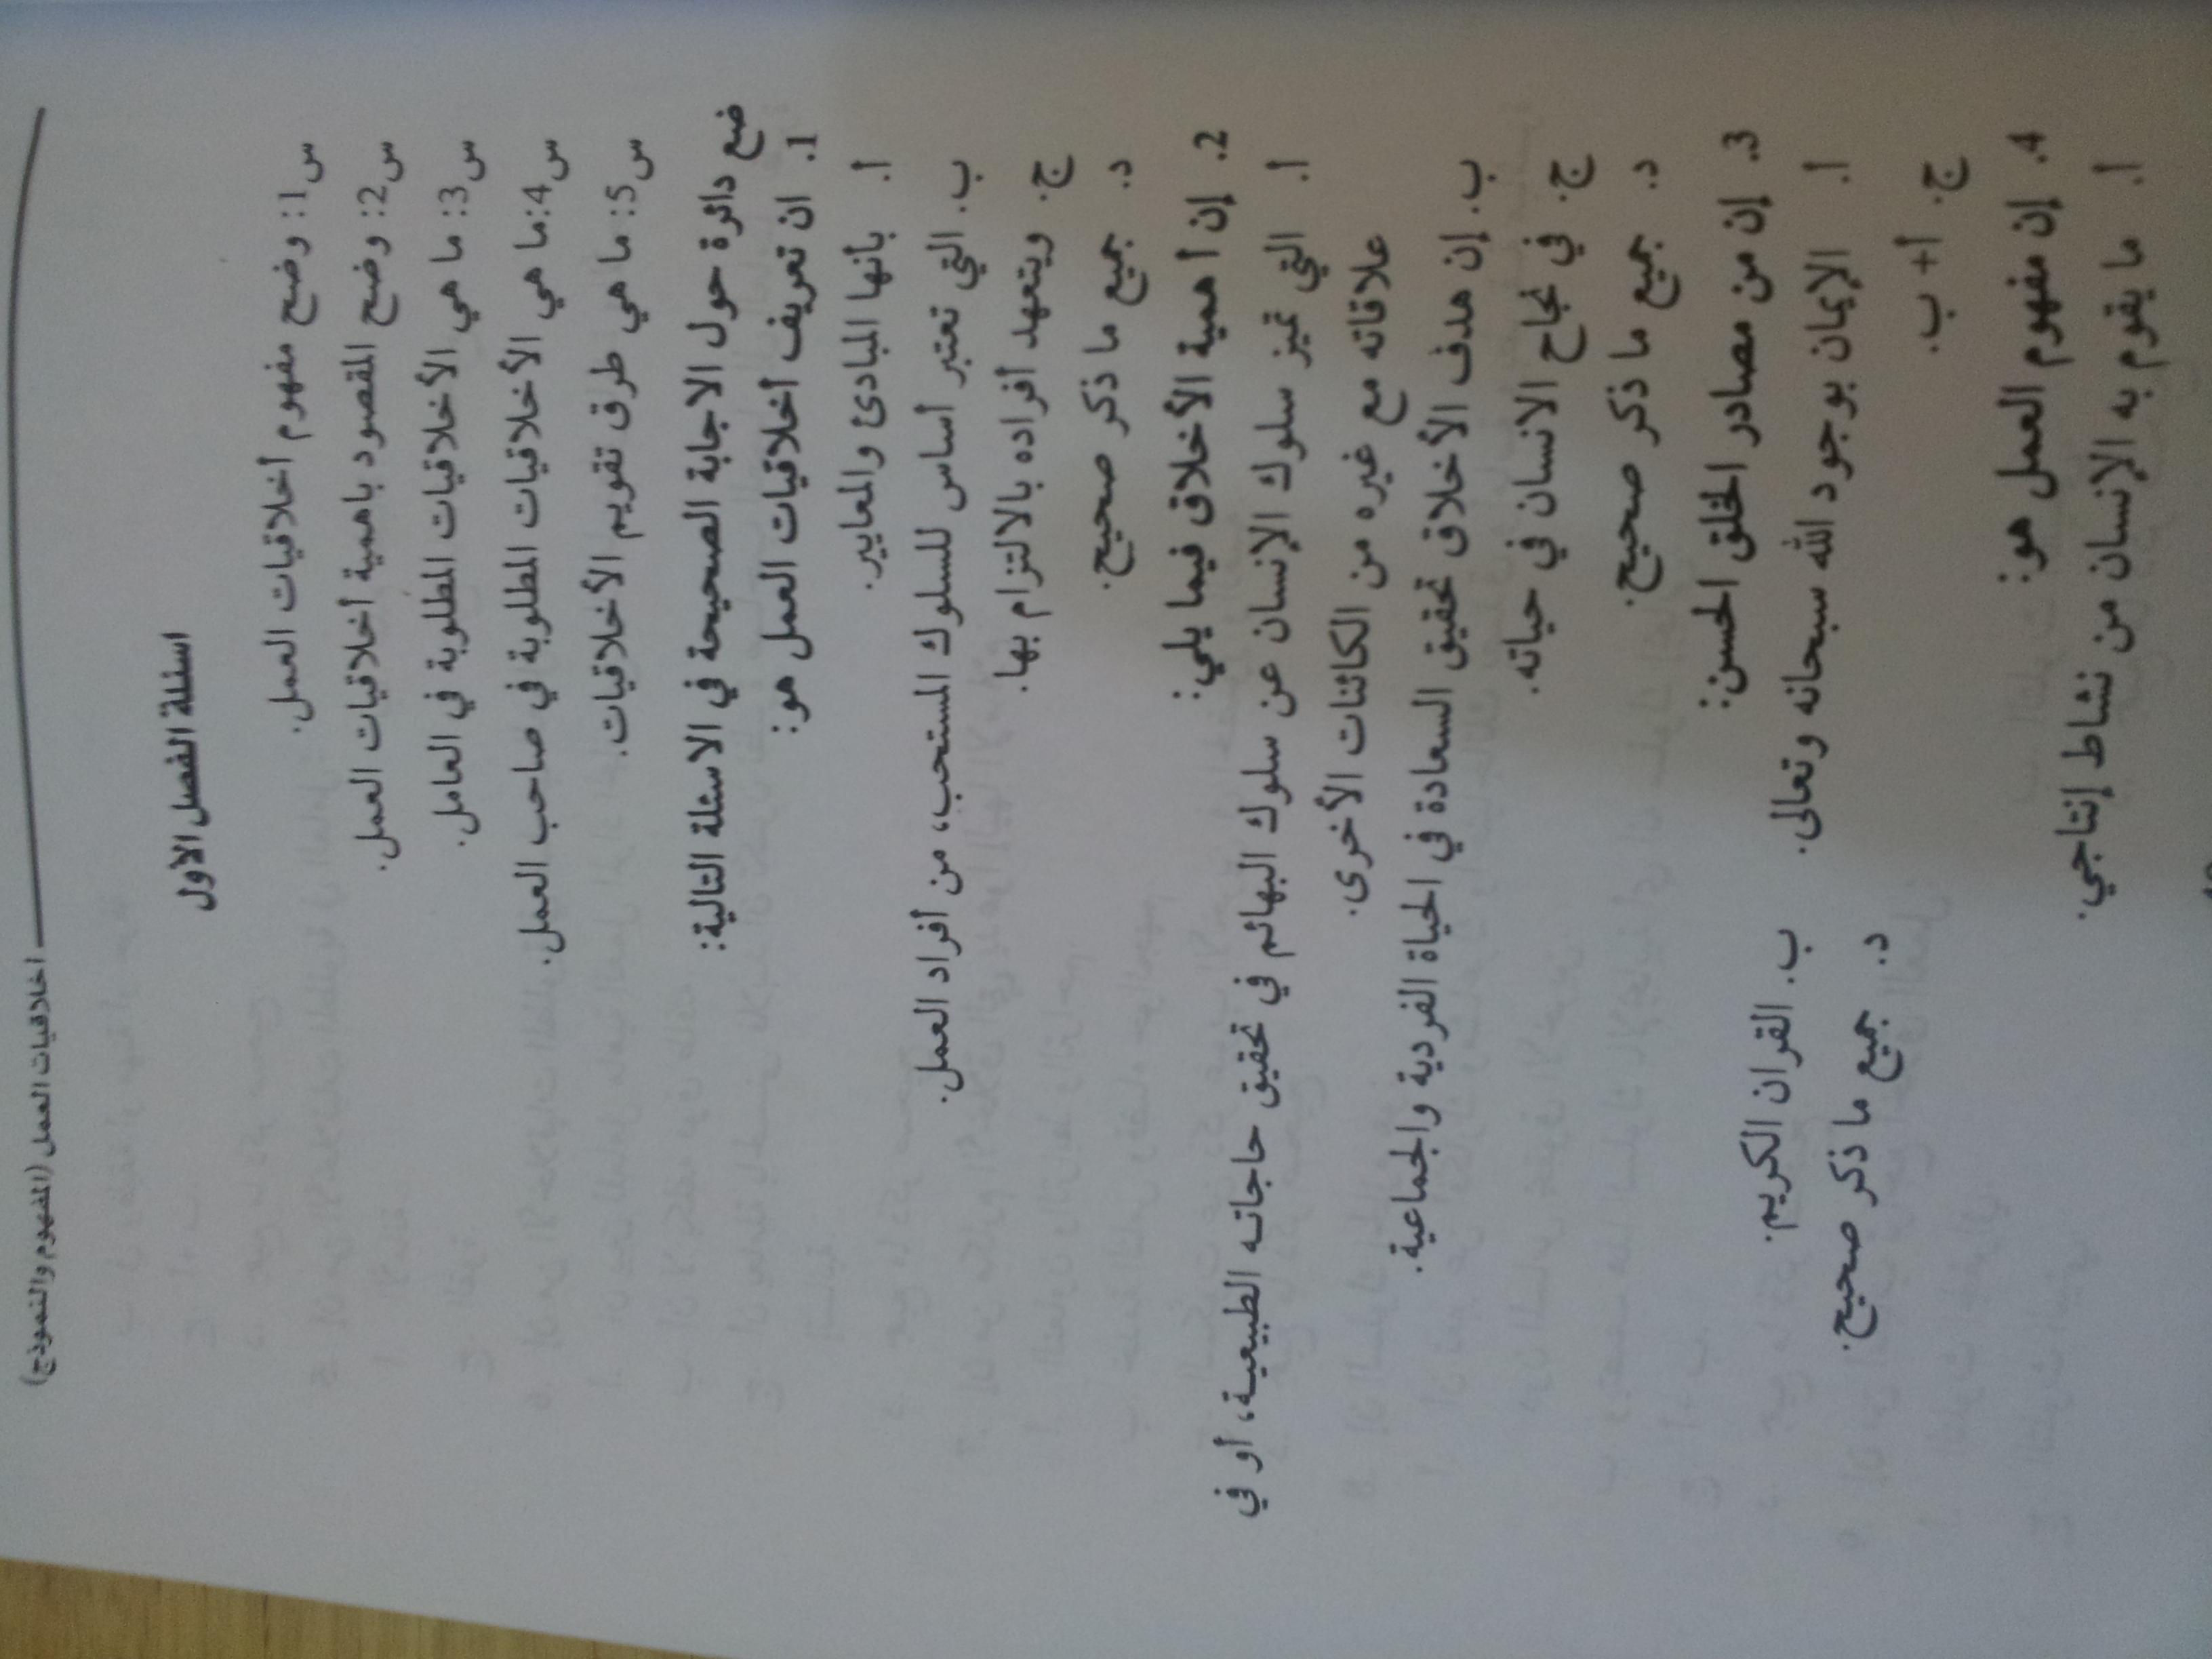 اخلاقيات العمل (المفهوم والنموذج)
اسئلة الفصل الأول
س1: وضح مفهوم أخلاقيات العمل.
س2: وضح المقصود باهمية أخلاقيات العمل.
س3: ما هي الأخلاقيات المطلوبة في العامل.
س4:ما هي الأخلاقيات المطلوبة في صاحب العمل.
س5: ما هي طرق تقويم الأخلاقيات.
ضع دائرة حول الاجابة الصحيحة في الاسئلة التالية:
1. ان تعريف أخلاقيات العمل هو:
أ. بأنها المبادئ والمعايير.
ب. التي تعتبر أساس للسلوك المستحب، من أفراد العمل.
ج. ويتعهد أفراده بالالتزام بها.
د. جميع ما ذكر صحيح.
2. إن أهمية الأخلاق فيما يلي:
أ. التي تميز سلوك الإنسان عن سلوك البهائم في تحقيق حاجاته الطبيعية، أو في
علاقاته مع غيره من الكائنات الأخرى.
ب. إن هدف الأخلاق تحقيق السعادة في الحياة الفردية والجماعية.
ج. في نجاح الانسان في حياته.
د. جميع ما ذكر صحيح.
3. إن من مصادر الخلق الحسن:
أ. الإيمان بوجود الله سبحانه وتعالى. ب. القران الكريم.
ج. أ+ ب. د. جميع ما ذكر صحيح.
4. إن مفهوم العمل هو:
أ. ما يقوم به الإنسان من نشاط إنتاجي.